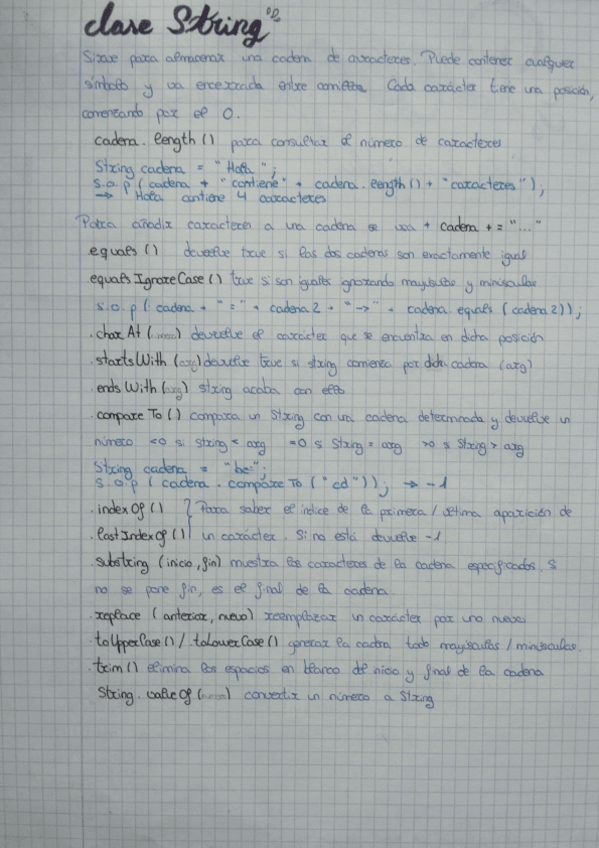 clase String
Sirve para almacenar una cadena de caracteres. Puede contener cualquier
símbolo y va encerrada entre comillas. Cada carácter tiene una posición,
comenzando por el 0.
cadena.length() para consultar el número de caracteres
String cadena = "Hola";
s.o.p(cadena + "contiene" + cadena.length() + "caracteres");
→ Hola contiene 4 caracteres
Para añadir caracteres a una cadena se usa + cadena += "..."
equals() devuelve true si las dos cadenas son exactamente igual
equalsIgnoreCase() true si son iguales ignorando mayúsculas y minúsculas
s.o.p(cadena + "=" + cadena2 + "→" + cadena.equals(cadena2));
.charAt(num) devuelve el carácter que se encuentra en dicha posición
.startsWith(arg) devuelve true si string comienza por dicha cadena (arg)
.endsWith(arg) string acaba con
.compareTo() compara un String con una cadena determinada y devuelve un
número <0 si string < arg =0 si String = arg >0 si String > arg
String cadena = "be";
s.o.p(cadena.compareTo("cd")); → -1
.indexOf() { Para saber el índice de la primera/última aparición de
.lastIndexOf() un carácter. Si no está devuelve -1
.substring(inicio, fin) muestra los caracteres de la cadena especificados. Si
no se pone fin, es el final de la cadena.
.replace(anterior, nuevo) reemplazar un carácter por uno nuevo
.toUpperCase() / .toLowerCase() generar la cadena todo mayúsculas/minúsculas.
.trim() elimina los espacios en blanco del inicio y final de la cadena
String.valueOf(num) convertir un número a String